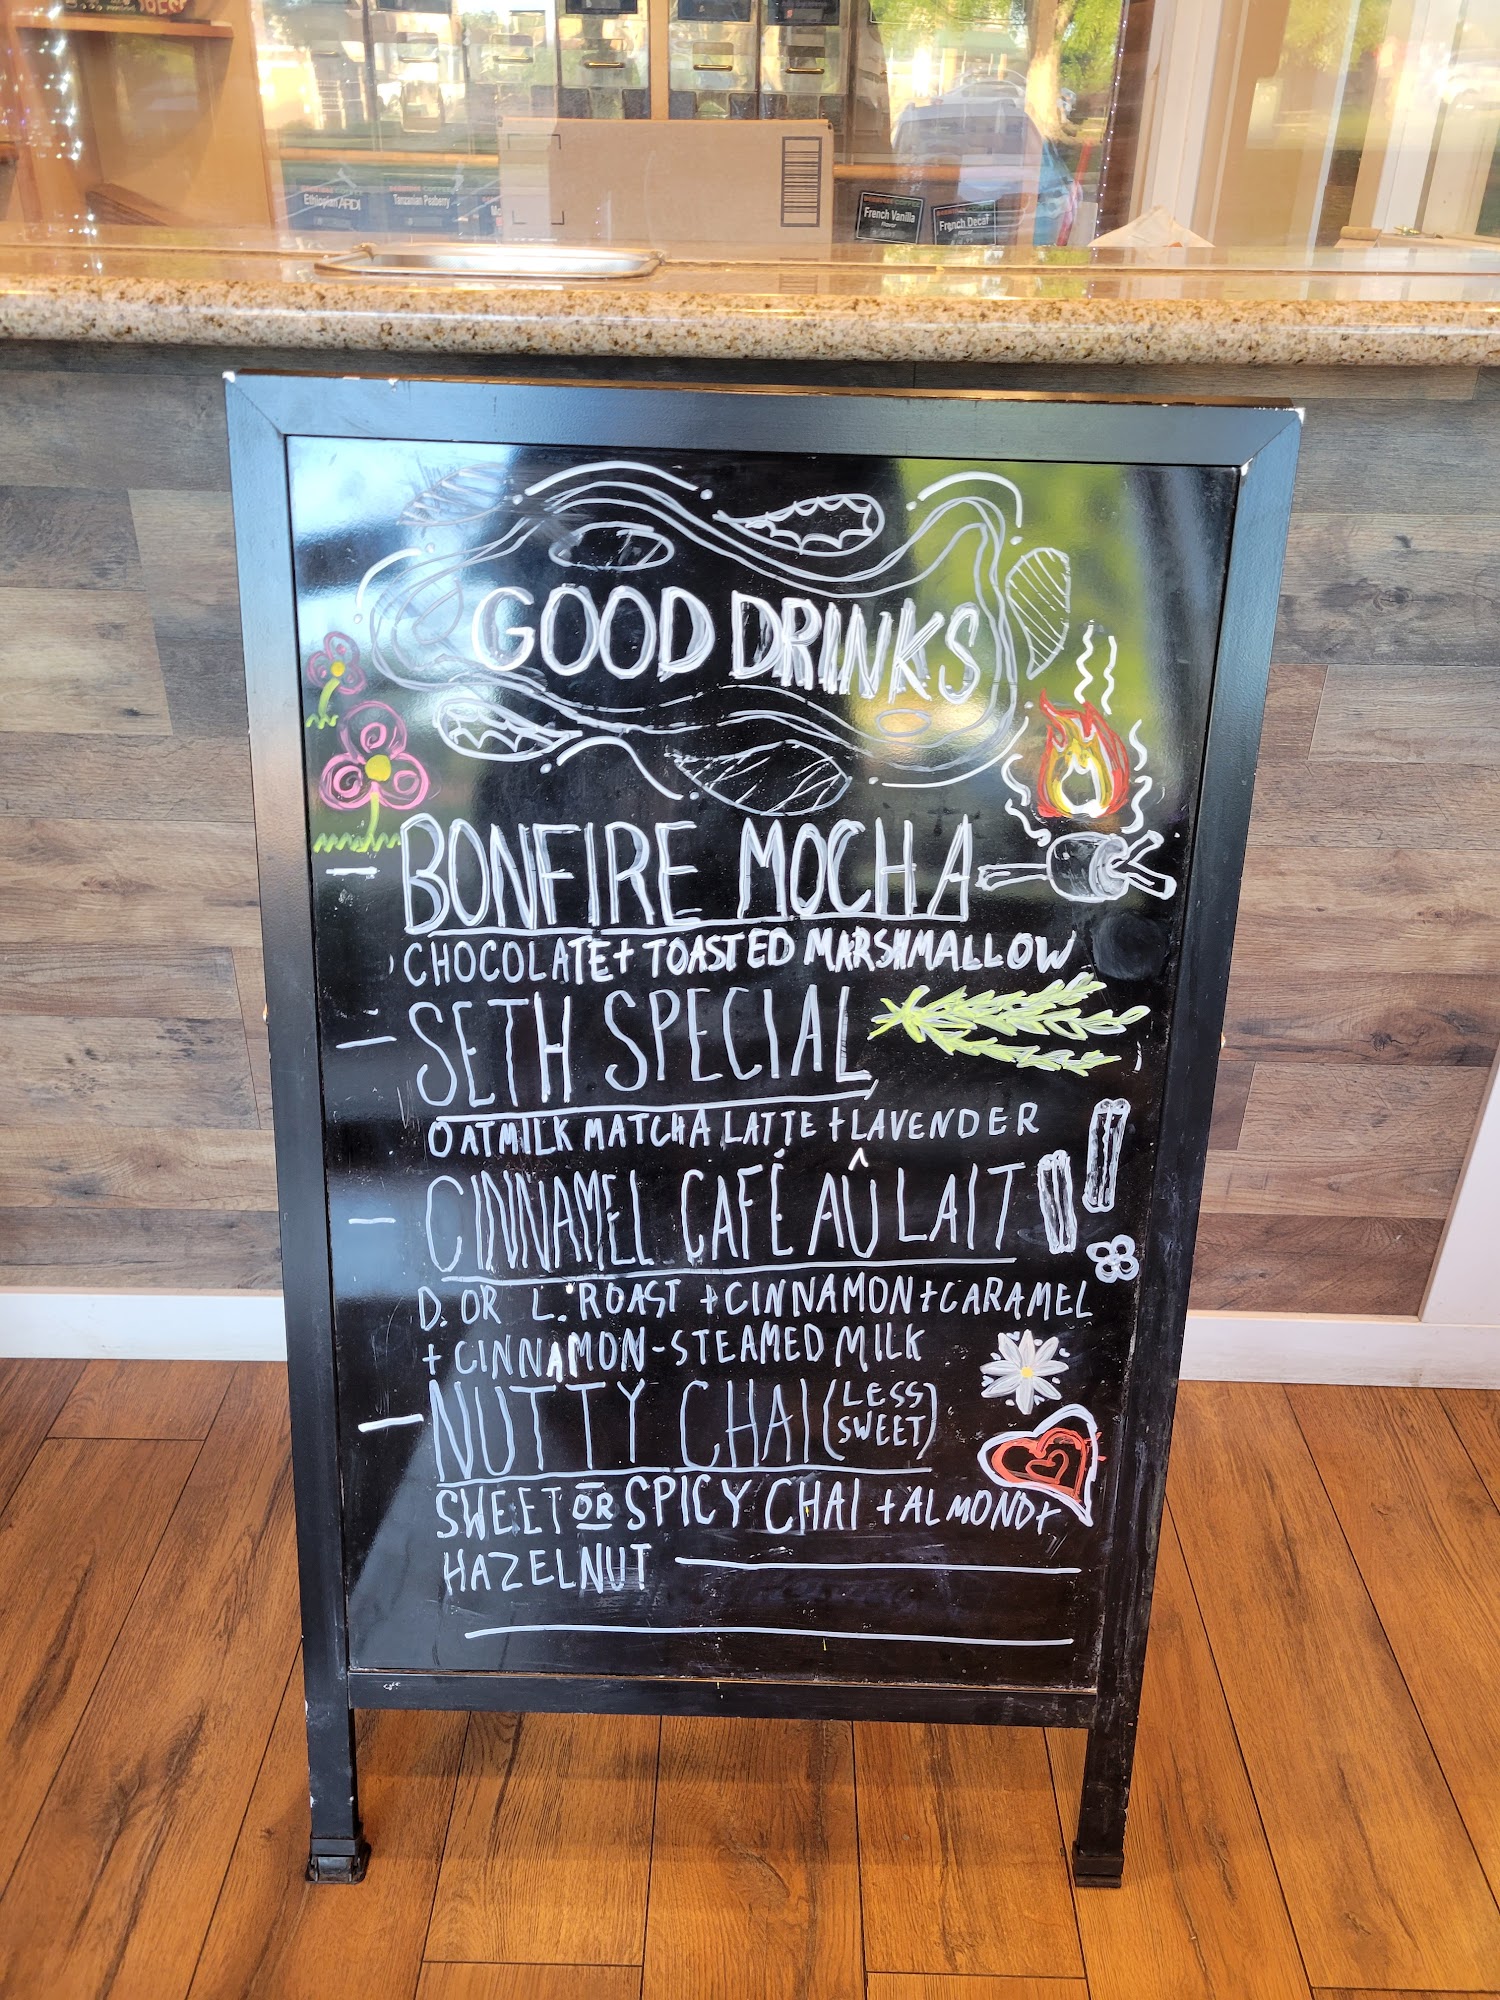 Ethiopian ARDI
Tanzanian Peaberry
French Vanilla
French Decaf
GOOD DRINKS
- BONFIRE MOCHA
CHOCOLATE + TOASTED MARSHMALLOW
- SETH SPECIAL
OATMILK MATCHA LATTE + LAVENDER
- CINNAMEL CAFÉ AÛ LAIT
D. OR L. ROAST + CINNAMON + CARAMEL
+ CINNAMON-STEAMED MILK
- NUTTY CHAI (LESS SWEET)
SWEET OR SPICY CHAI + ALMOND +
HAZELNUT